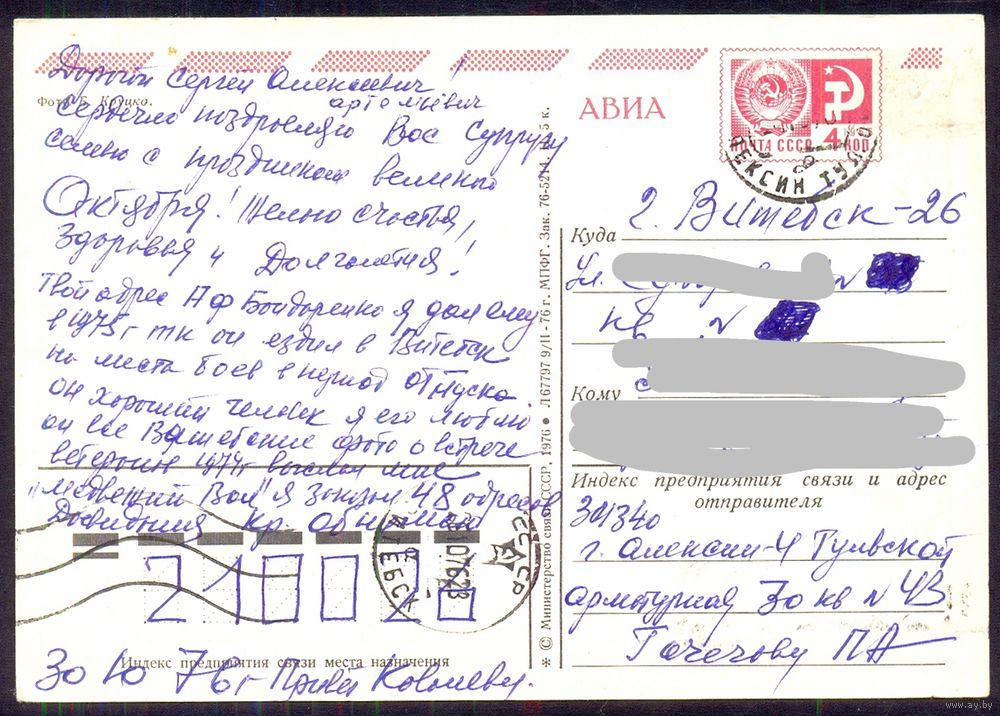 Дорогой Сергей Алексеевич!
Артемьевич
Фото Б. Круцко.
Сердечно поздровляю Вас Супругу
семью с праздником великого
Октября! Желаю счастья,
Здоровья и Долголетия!
Твой адрес А Ф Бондаренко я дал ему
в 1975 г тк он ездил в Витебск
на места боев в период отпуска
он хороший человек я его люблю
он все фото о встрече
ветеронов 1974г выслал мне
Вал" я 48 адресов
Досвидания Кр. Обнимаю
210026
Индекс предприятия связи места назначения
30 10 76 г Привет Ковалеву.
АВИА
ПОЧТА СССР 4 КОП
АЛЕКСИН ТУЛ
г. Витебск-26
Куда
Ул. N
кв N
Кому
Индекс предприятия связи и адрес
отправителя
301340
г. Алексин-4 Тульской
арматурная 30 кв N 43
Гочегову ПА
ВИТЕБСК СССР
* © Министерство связи СССР, 1976 ● Л67797 9/II-76 г. МПФГ. Зак. 76-5214. Ц. 5 к.
www.ay.by